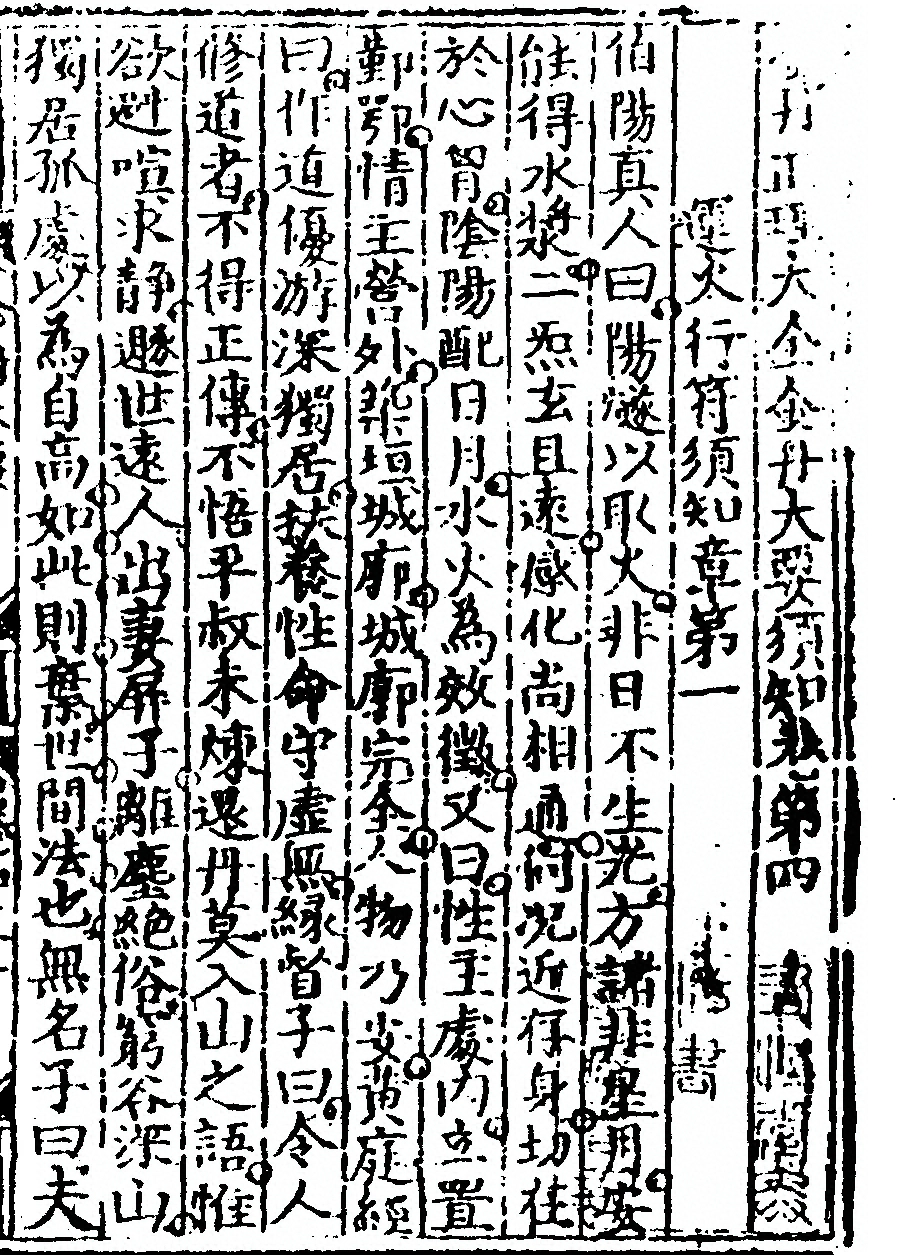 丹正理大全金丹大要須知卷第四
運火行符須知章第一
伯陽真人曰陽燧以取火非日不生光方諸非星月安
能得水漿二炁玄且遠感化尚相通何况近存身切在
於心胷陰陽配日月水火為效徵又曰性主處內立置
鄞鄂情主營外築垣城廓城廓完全人物乃安黄庭經
曰作道優游深獨居扶養性命守虛無緣督子曰令人
修道者不得正傳不悟平叔未煉還丹莫入山之語惟
欲避喧求静遯世遠人出妻屏子離塵絶俗窮谷深山
獨居孤處以為自高如此則棄世間法也無名子曰夫